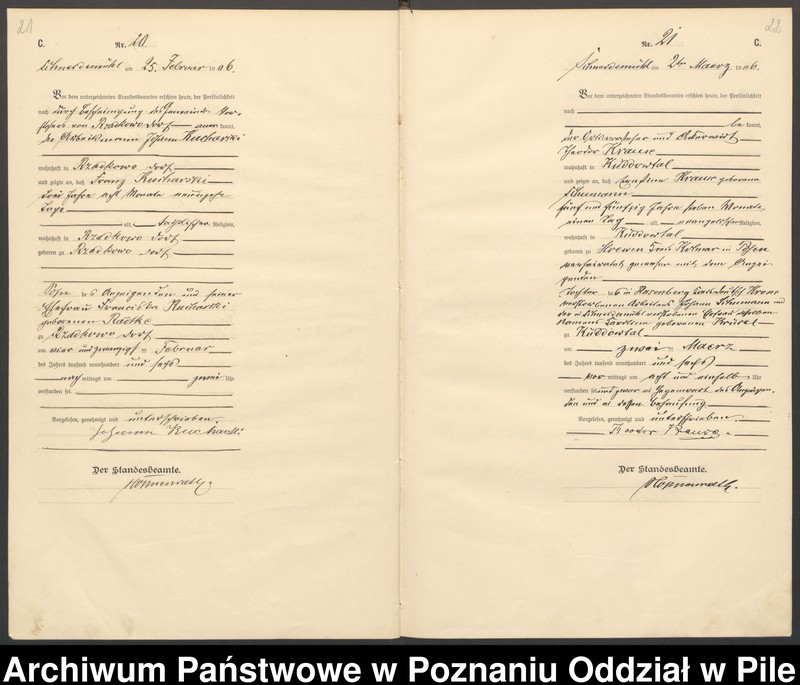 21
C.
Nr. 20.
Schneidemühl am 25. Februar 1906.
Vor dem unterzeichneten Standesbeamten erschien heute, der Persönlichkeit
nach durch Bescheinigung des Gemeinde-Vor-
stehers von Rzadkowo Dorf kannt,
der Arbeitsmann Johann Kucharski
wohnhaft in Rzadkowo Dorf
und zeigte an, daß Franz Kucharski
drei Jahre acht Monate
Tage
alt, katholischer Religion,
wohnhaft in Rzadkowo Dorf
geboren zu Rzadkowo Dorf
Sohn des Anzeigenden und seiner
Ehefrau Franciska Kucharski
geborenen Radtke
zu Rzadkowo Dorf
am vier und zwanzigsten Februar
des Jahres tausend neunhundert und sechs
nach mittags um zwei Uhr
verstorben sei.
Vorgelesen, genehmigt und unterschrieben.
Johann Kucharski
Der Standesbeamte.
22
Nr. 21
C.
Schneidemühl am 2ten Maerz 1906.
Vor dem unterzeichneten Standesbeamten erschien heute, der Persönlichkeit
nach
be kannt,
der Ortsvorsteher und Ackerwirt
Theodor Krause
wohnhaft in Küddowtal
und zeigte an, daß Krause geborene
Schumann
fünf und fünfzig Jahre sieben Monate
einen Tag alt, evangelischer Religion,
wohnhaft in Küddowtal
geboren zu Kreis Kolmar in Posen
verheiratet gewesen mit dem Anzei-
genden
Tochter des in Rosenberg Kreis Deutsch Krone
verstorbenen Arbeiters Johann Schumann und
der in Schneidemühl verstorbenen Ehefrau
Karoline geborenen
zu Küddowtal
am zwei Maerz
des Jahres tausend neunhundert und sechs
vor mittags um acht und einhalb Uhr
verstorben sei und zwar in Gegenwart des Anzeigen-
den und in dessen Behausung
Vorgelesen, genehmigt und unterschrieben.
Theodor Krause.
Der Standesbeamte.
Archiwum Państwowe w Poznaniu Oddział w Pile